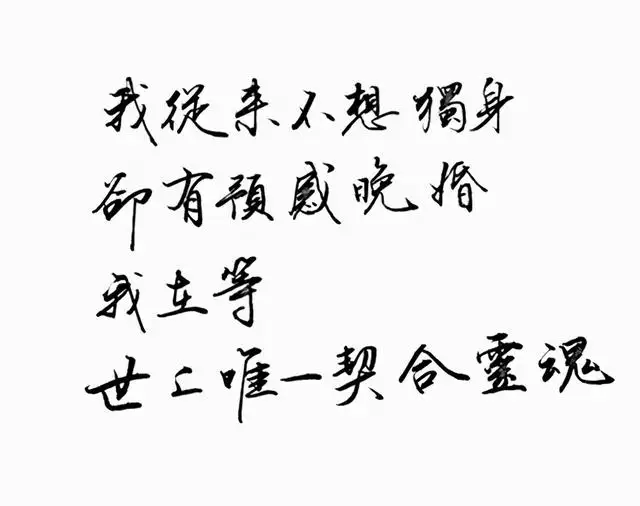 我從来不想獨身
卻有預感晚婚
我在等
世上唯一契合靈魂